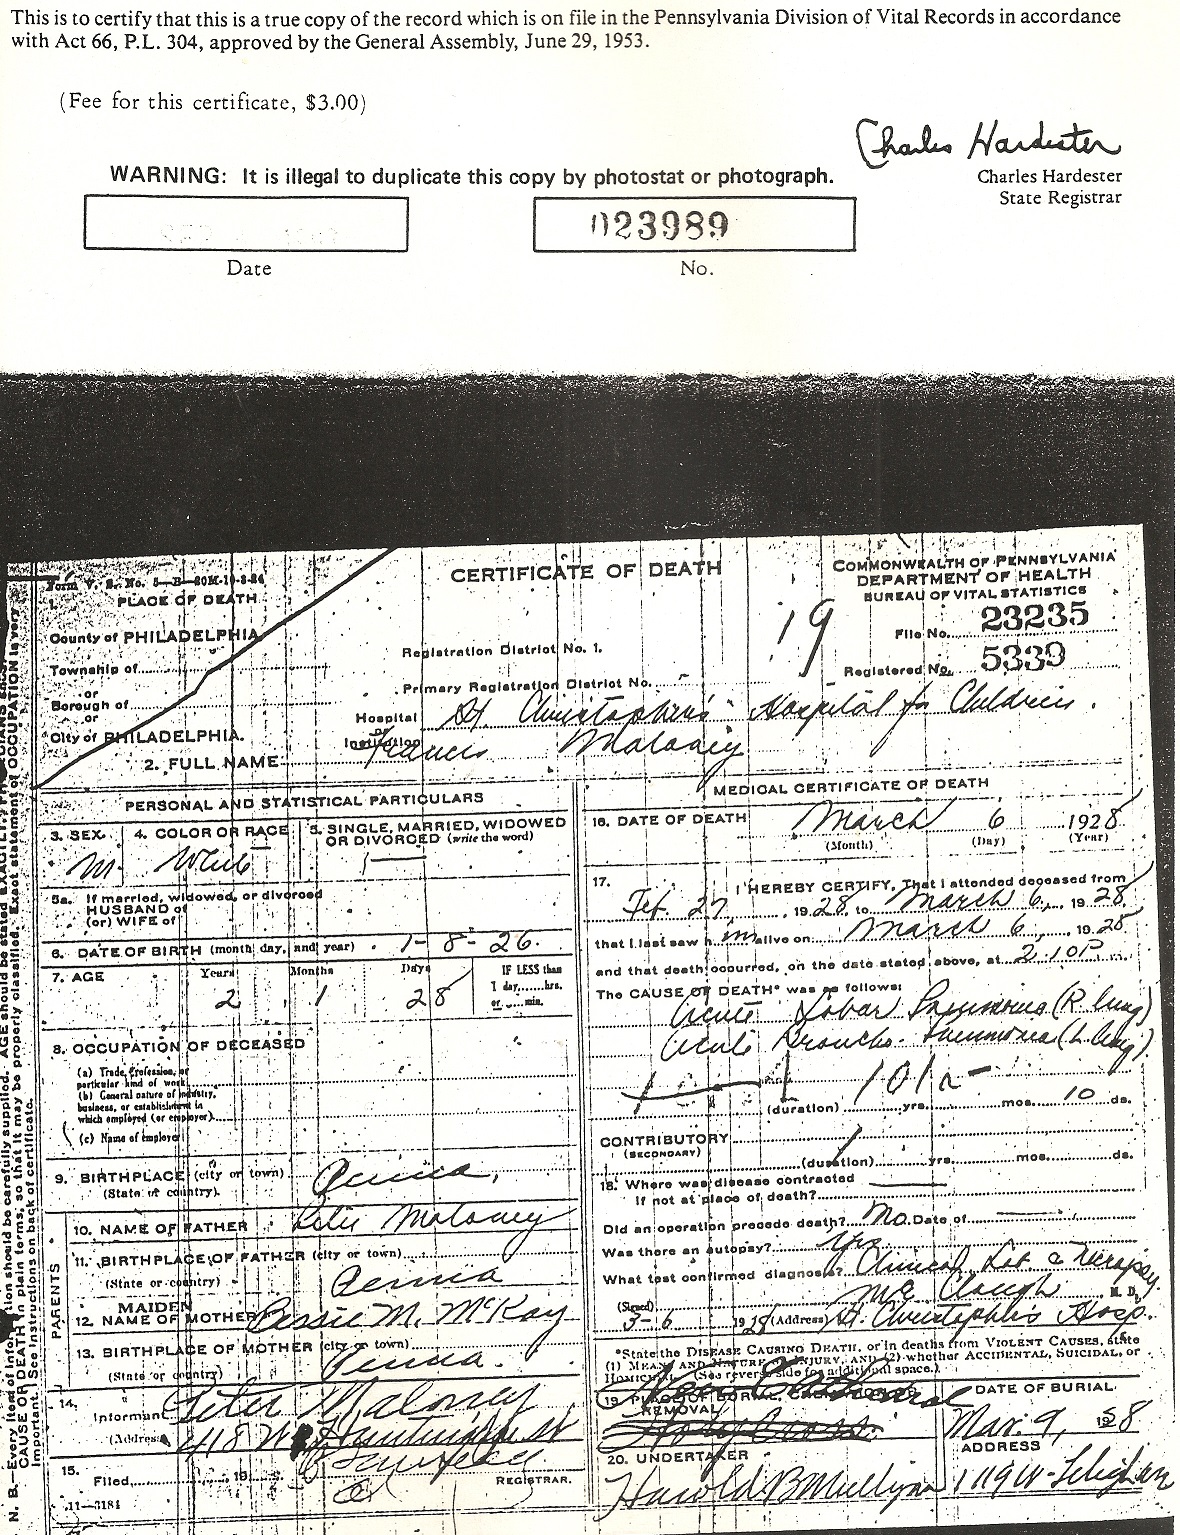 This is to certify that this is a true copy of the record which is on file in the Pennsylvania Division of Vital Records in accordance
with Act 66, P.L. 304, approved by the General Assembly, June 29, 1953.
(Fee for this certificate, $3.00)
Charles Hardester
WARNING: It is illegal to duplicate this copy by photostat or photograph.
Charles Hardester
State Registrar
023989
Date
No.
Form V. S. No. 5—B—20M-10-8-24
CERTIFICATE OF DEATH
COMMONWEALTH OF PENNSYLVANIA
DEPARTMENT OF HEALTH
BUREAU OF VITAL STATISTICS
1. PLACE OF DEATH
County of PHILADELPHIA
Township of
or
Borough of
or
City of PHILADELPHIA.
Registration District No. 1.
Primary Registration District No.
19
File No. 23235
Registered No. 5339
Hospital or Institution St Christopher's Hospital for Children.
2. FULL NAME Francis Maloney
PERSONAL AND STATISTICAL PARTICULARS
3. SEX M.
4. COLOR OR RACE White
5. SINGLE, MARRIED, WIDOWED
OR DIVORCED (write the word)
5a. If married, widowed, or divorced
HUSBAND of
(or) WIFE of
6. DATE OF BIRTH (month, day, and year) 1-8-26.
7. AGE Years Months Days
2 1 28
IF LESS than
1 day, hrs.
or min.
8. OCCUPATION OF DECEASED
(a) Trade, Profession, or
particular kind of work
(b) General nature of industry,
business, or establishment in
which employed (or employer)
(c) Name of employer
9. BIRTHPLACE (city or town)
(State or country). Penna.
PARENTS
10. NAME OF FATHER Peter Maloney
11. BIRTHPLACE OF FATHER (city or town)
(State or country) Penna
12. MAIDEN NAME OF MOTHER Bessie M. McKay
13. BIRTHPLACE OF MOTHER (city or town)
(State or country) Penna.
14. Informant Peter Maloney
(Address) 418 W Huntingdon St
15. Filed 19
REGISTRAR.
11—3184
MEDICAL CERTIFICATE OF DEATH
16. DATE OF DEATH March 6 1928
(Month) (Day) (Year)
17. I HEREBY CERTIFY, That I attended deceased from
Feb. 27, 1928 to March 6, 1928
that I last saw him alive on March 6, 1928
and that death occurred, on the date stated above, at 2.10P.
The CAUSE OF DEATH* was as follows:
Acute Lobar Pneumonia (R. lung)
Acute Broncho-Pneumonia (L. lung).
101a
(duration) yrs. mos. 10 ds.
CONTRIBUTORY
(SECONDARY)
(duration) yrs. mos. ds.
18. Where was disease contracted
if not at place of death?
Did an operation precede death? No. Date of
Was there an autopsy? Yes
What test confirmed diagnosis? Clinical Lab & Necropsy
(Signed) M. D.
3-6 1928 (Address) St. Christopher's Hosp.
*State the DISEASE CAUSING DEATH, or in deaths from VIOLENT CAUSES, state
(1) MEANS AND NATURE OF INJURY, AND (2) whether ACCIDENTAL, SUICIDAL, or
HOMICIDAL. (See reverse side for additional space.)
19. PLACE OF BURIAL, CREMATION OR
REMOVAL
Holy Cross
DATE OF BURIAL
Mar. 9, 1928
20. UNDERTAKER
Harold B Mullin
ADDRESS
1119 W. Lehigh
N. B.—Every item of information should be carefully supplied. AGE should be stated EXACTLY. PHYSICIANS should state
CAUSE OF DEATH in plain terms, so that it may be properly classified. Exact statement of OCCUPATION is very
important. See instructions on back of certificate.